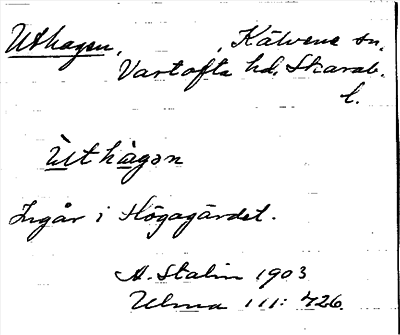 Uthagen, , Kälvene sn.
Vartofta hd. Skarab.
l.
Ùthàgən
Ingår i Högagärdet.
A. Stalin 1903
Ulma 111: 426.